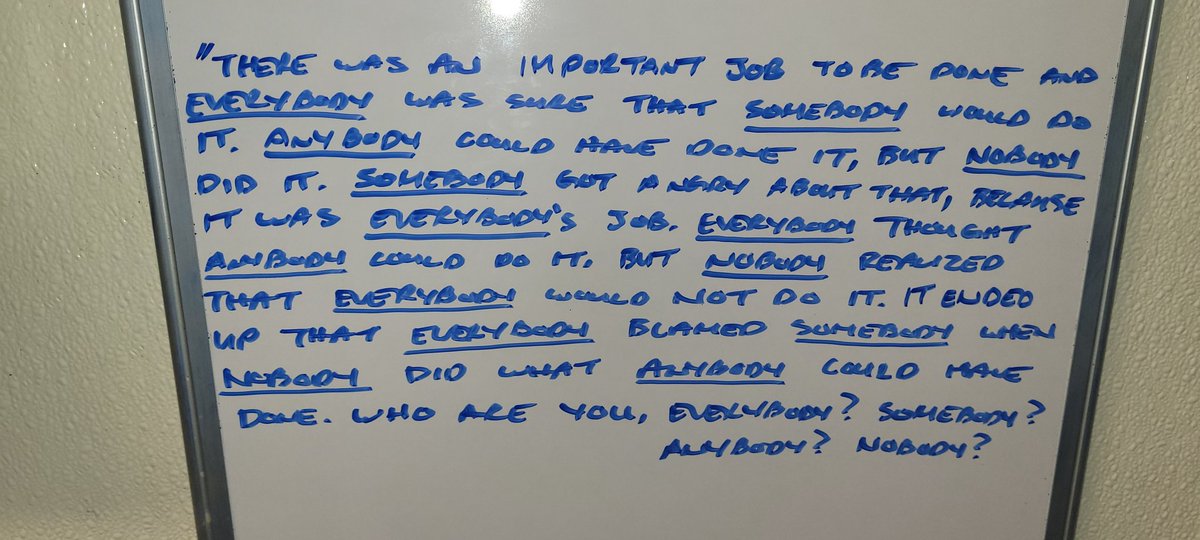 "THERE WAS AN IMPORTANT JOB TO BE DONE AND
EVERYBODY WAS SURE THAT SOMEBODY WOULD DO
IT. ANYBODY COULD HAVE DONE IT, BUT NOBODY
DID IT. SOMEBODY GOT ANGRY ABOUT THAT, BECAUSE
IT WAS EVERYBODY'S JOB. EVERYBODY THOUGHT
ANYBODY COULD DO IT. BUT NOBODY REALIZED
THAT EVERYBODY WOULD NOT DO IT. IT ENDED
UP THAT EVERYBODY BLAMED SOMEBODY WHEN
NOBODY DID WHAT ANYBODY COULD HAVE
DONE. WHO ARE YOU, EVERYBODY? SOMEBODY?
ANYBODY? NOBODY?